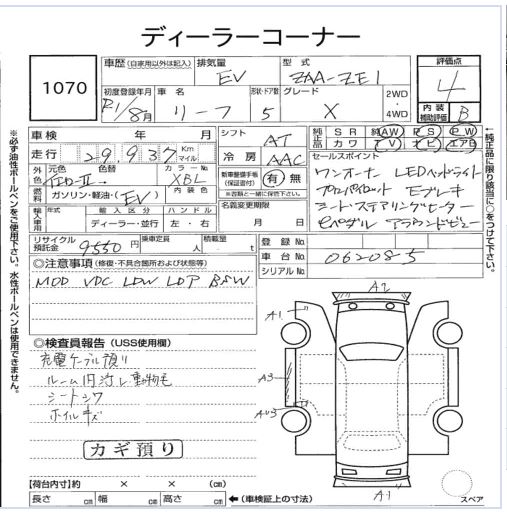 ディーラーコーナー
1070
車歴 (自家用以外は記入) 排気量 EV 型式 ZAA-ZE1 評価点 4
初度登録年月 R1/8月 リーフ 形状・ドア数 5 グレード X 2WD・4WD 内装補助評価 B
※必ず油性ボールペンをご使用下さい。水性ボールペンは使用できません。
車検 年 月 シフト AT 純正品 SR 純 AW PS PW
カワ TV ナビ エアB
走行 29,937 Km マイル 冷房 AAC セールスポイント
外色 元色 色替 カラーNo XBL 新車整備手帳(保証書付) 有 無 ※衣類と一緒に保管下さい
燃料 ガソリン・軽油・(EV) 内装色 名義変更期限 月 日
ワンオーナー LEDヘッドライト
プロパイロット Eブレーキ
シート・ステアリングヒーター
eペダル アラウンドビュー
←純正品に限り該当に○をつけて下さい。
輸入車用 年式 輸入区分 ハンドル
ディーラー・並行 左・右
リサイクル預託金 9550円 乗車定員 人 積載量 t 登録No.
車台No. 062085
シリアルNo.
◎注意事項 (修復・不具合箇所および状態等)
MOD VDC LDW LDP BSW
◎検査員報告 (USS使用欄)
充電ケーブル預り
ルーム内汚レ動物毛
シートシワ
ホイルキズ
カギ預り
A2
A1
A3
A1
スペア
【荷台内寸】約 × × (cm)
長さ cm 幅 cm 高さ cm ←(車検証上の寸法)